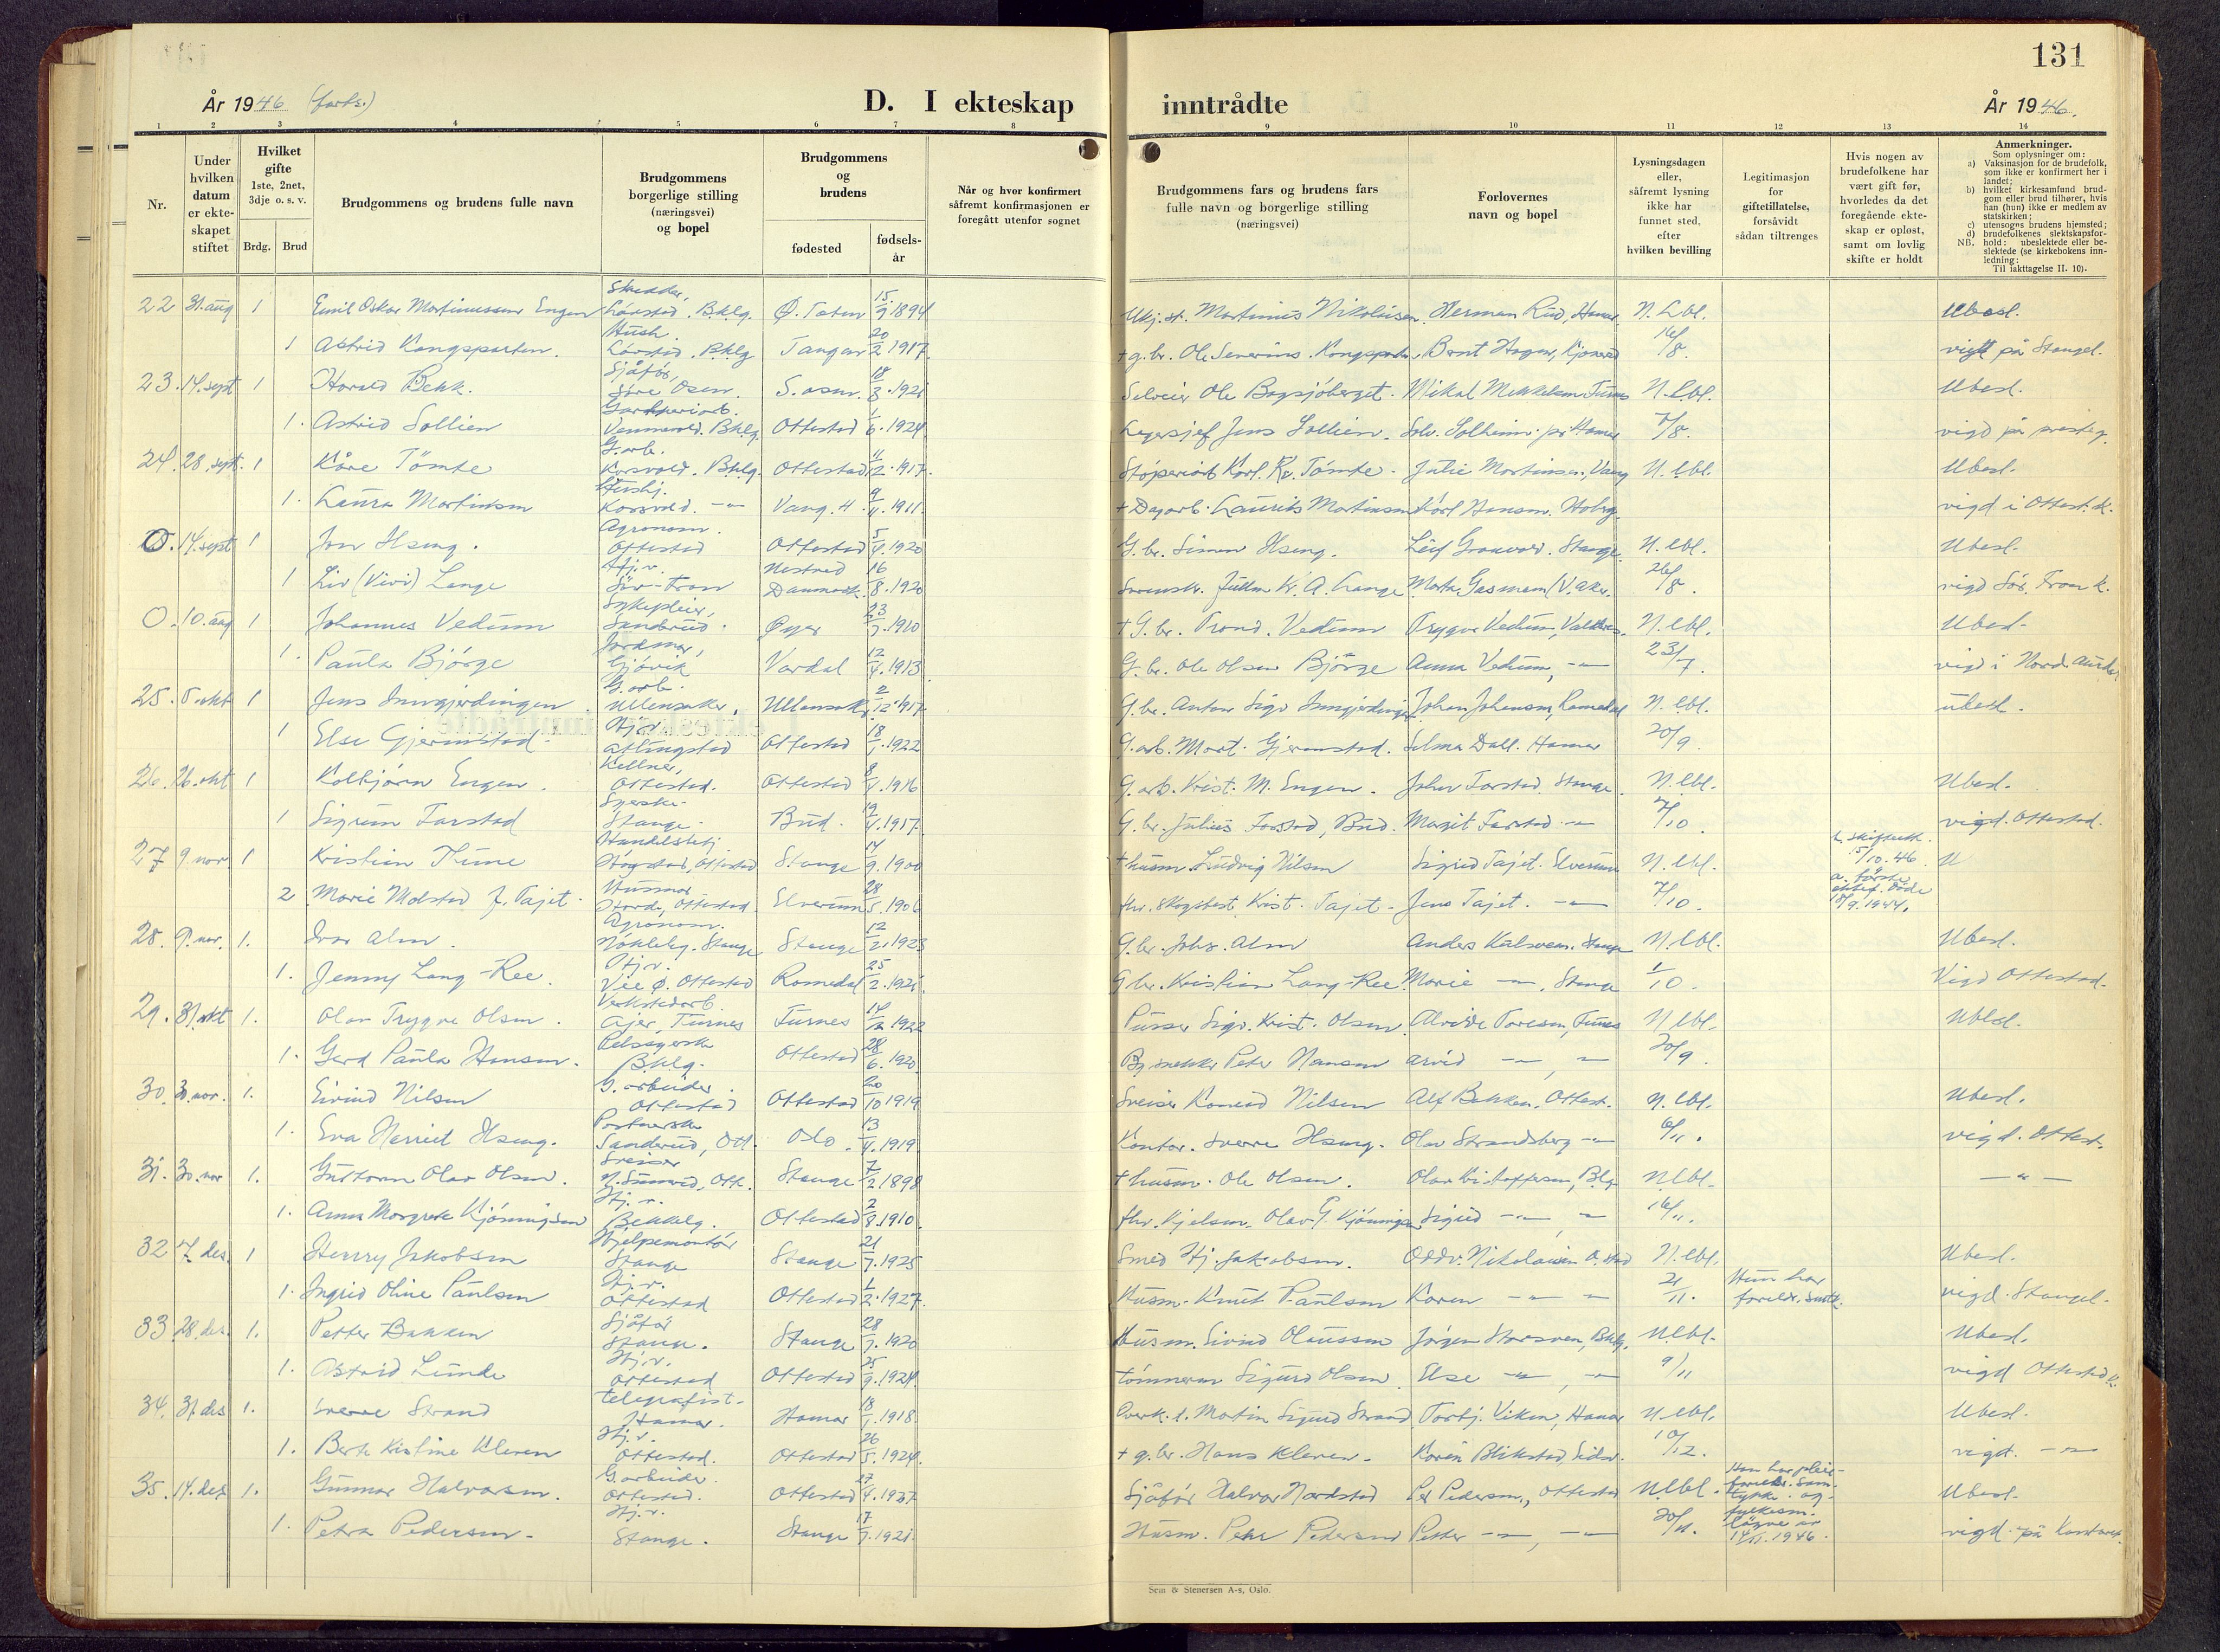 131
År 1946 (forts.)
D. I ekteskap
inntrådte
År 1946.
1 2 3 4 5 6 7 8 9 10 11 12 13 14
Nr.
Under hvilken datum er ekteskapet stiftet
Hvilket gifte 1ste, 2net, 3dje o. s. v.
Brdg. Brud
Brudgommens og brudens fulle navn
Brudgommens borgerlige stilling (næringsvei) og bopel
Brudgommens og brudens
fødested
fødselsår
Når og hvor konfirmert såfremt konfirmasjonen er foregått utenfor sognet
Brudgommens fars og brudens fars fulle navn og borgerlige stilling (næringsvei)
Forlovernes navn og bopel
Lysningsdagen eller, såfremt lysning ikke har funnet sted, efter hvilken bevilling
Legitimasjon for giftetillatelse, forsåvidt sådan tiltrenges
Hvis nogen av brudefolkene har vært gift før, hvorledes da det foregående ekteskap er opløst, samt om lovlig skifte er holdt
Anmerkninger.
Som oplysninger om:
a) Vaksinasjon for de brudefolk, som ikke er konfirmert her i landet;
b) hvilket kirkesamfund brudgom eller brud tilhører, hvis han (hun) ikke er medlem av statskirken;
c) utensogns brudens hjemsted;
d) brudefolkenes slektskapsforhold: ubeslektede eller beslektede (se kirkebokens innledning:
NB. Til iakttagelse II. 10).
22 31. aug 1 Emil Oskar Martinussen Engen Løvstad. Bklg. Ø. Toten 15/9 1894 Martinius Nikolaisen. Herman Rud, Hamar N. Lbl. Ubesl.
1 Astrid Kongsparten. Løvstad. Bklg Tangen 20/2 1917 + g. br. Ole Severins. Kongsparten, Bernt Hagen, 16/8. vigt på Stangel.
23. 14. sept 1 Harald Bekk. Sjåfør, Søre Osen. S. osen. Ole Bagsjöberget. Mikal Mikkelsen Furnes N. lbl. Ubesl.
1. Astrid Sollien Bklg. Ottestad 1/6. 1924 Lagersjef Jens Sollien. 7/8. vigd på presteg.
24. 28. sept. 1 Kåre Tömte G. arb. Korsvold. Bklg. Ottestad 1917. Karl Kr. Tömte. Julie Martinsen, Vang N. lbl. Ubesl.
1. Laura Martinsen Korsvold. -"- Vang. H. 1911. + Dagarb. Laurits Martinsen Karl Hansen. vigd i Ottest. k.
O. 14. sept 1 Jon Hseng. Agronom. Ottestad Ottestad 5/4. 1920 G. br. Simen Hseng. Leif Granvold. Stange. N. lbl. Ubesl.
1 Liv (Vivi) Lange Hj. v. Sör-Fron Nestved Danmark. 16/8. 1920 Kr. A. Lange 26/8. vigd Sör. Fron k.
O. 10. aug 1 Johannes Vedum Sykepleier, Sanderud. Öyer 23/7. 1910 + G. br. Trond. Vedum Trygve Vedum, N. lbl. Ubesl.
1. Paula Björge Jordmor, Gjövik Vardal 12/4. 1913 G. br. Ole Olsen Björge Anna Vedum, -"- 23/7 vigd i Nord. Aurdal
25. 5. okt 1 Jens Inngjerdingen G. arb. Ullensaker. Ullensaker 2/12 1917 G. br. Anton Sigv Inngjerdingen Johan Johansen, Romedal N. lbl. ubesl.
1 Else Gjermstad. Hj. v. Atlungstad Ottestad 18/1. 1922 G. arb. Mart. Gjermstad. Selma Dall. Hamar 20/9.
26. 26. okt 1 Kolbjørn Engen. Kellner, Ottestad. Ottestad 8/4. 1916 G. arb. Krist. M. Engen. Johan Farstad. Stange. N. lbl. Ubesl.
1 Sigrun Farstad Syerske. Stange. Bud. 19/4. 1917. G. br. Julius Farstad, Bud. Margit Farstad -"- 7/10 vigd. Ottestad.
27 9. nov 1 Kristian Thune Ottestad Stange 14/9. 1900 + husm. Ludvig Nilsen Sigrid Tajet. Elverum N. lbl. 15/10. 46. U
2 Marie Molstad f. Tajet. Husmor Ottestad. Elverum 28/5. 1906 Krist. Tajet. Jens Tajet. -"- 7/10. 18/9. 1944.
28. 9. nov. 1. Ivar Alm. Agronom. Stange Stange 12/2. 1923 G. br. Johs. Alm Anders Kulsveen. Stange N. lbl. Ubesl.
1. Jenny Lang-Ree. Hj. v. Vie Ö. Ottestad Romedal 25/2. 1921. G. br. Kristian Lang-Ree Marie -"-, Stange 1/10. Vigd Ottestad.
29. 31. okt 1. Olav Trygve Olsen. Verkstedarb. Ajer, Furnes Furnes 14/12 1922 Pusser Sigv. Krist. Olsen Alvilde Toresen, Furnes N lbl. Ubesl.
1. Gerd Paula Hansen. Pelssyerske Bklg. Ottestad 28/6. 1920. Peter Hansen Arvid -"-, -"- 20/9.
30. 30. nov. 1. Eivind Nilsen G. arbeider. Ottestad Ottestad 20/10 1919 Sveiser Konrad Nilsen Alf Bekken, Ottest. N. lbl. Ubesl.
1. Eva Harriet Hseng. Sanderud, Ott. Oslo. 13/4. 1919 Kontor. Sverre Hseng. Olav Strandsberg -"- 6/11. vigd. Ottest.
31. 30. nov 1. Guttorm Olav Olsen. Sveiser Ott. Stange 7/2. 1898 + husm. Ole Olsen. Olav Kristoffersen, Blg. N lbl. -"-
1. Anna Margrete Kjönnigsen Hj. v. Bekkelg. Ottestad 2/8. 1910. Olav G. Kjönnigsen Sigrid -"-, -"- 16/11.
32 7. des. 1 Henry Jakobsen Hjelpemontör Stange Stange 21/7. 1925 Smed Hj. Jakobsen. Oddv. Nikolaisen O. stad N. lbl. Ubesl.
1. Ingrid Oline Paulsen Hj. v. Ottestad Ottestad 1/2. 1927. Husm. Knut Paulsen Karen -"- -"- 21/11. Hun har foreldr. samtk. vigd. Stangel.
33. 28. des. 1. Petter Bakken Sjåför Stange. Stange 28/7. 1920 Husm. Eivind Olaussen Jörgen Storsveen, Bklg. N lbl. Ubesl.
1. Astrid Lunde Hj. v. Ottestad Ottestad 25/9. 1924. Tömmerm Sigurd Olsen Else -"-, -"- 9/11 vigd Ottestad k.
34. 31. des 1. Sverre Strand telegrafist. Hamar. Hamar 18/1. 1918. Martin Sigurd Strand Torbj. Viken, Hamar N. lbl. Ubesl.
1. Berte Kristine Kleven Hj. v. Ottestad. Ottestad 26/5. 1924. + g. br. Hans Kleven. Karen Blikstad, 10/12. vigd. -"-
35. 14. des 1. Gunnar Halvorsen. G. arbeider. Ottestad. Ottestad 27/4. 1927 Sjåför Halvor Nordstad Per Pedersen., Ottestad N lbl. Han har pleie-foreldr. samtykke og fylkesm. 14/11. 1946. Ubesl.
1. Petra Pedersen. Hj. v. Stange. Stange 17/7. 1921. Husm. Peder Pedersen Petter -"-, -"- 20/11. vigd. på Kontoret.
Sem & Stenersen A-s, Oslo.